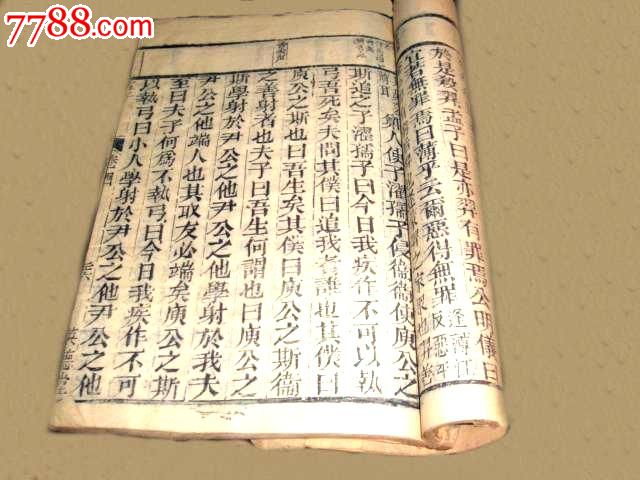 7788.com
於是殺羿孟子曰是亦羿有罪焉公明儀曰
宜若無罪焉曰薄乎云爾惡得無罪
鄭人使子濯孺子侵衞衞使庾公之
斯追之子濯孺子曰今日我疾作不可以執
弓吾死矣夫問其僕曰追我者誰也其僕曰
庾公之斯也曰吾生矣其僕曰庾公之斯衞
之善射者也夫子曰吾生何謂也曰庾公之
斯學射於尹公之他尹公之他學射於我夫
尹公之他端人也其取友必端矣庾公之斯
至曰夫子何爲不執弓曰今日我疾作不可
以執弓曰小人學射於尹公之他尹公之他
卷四